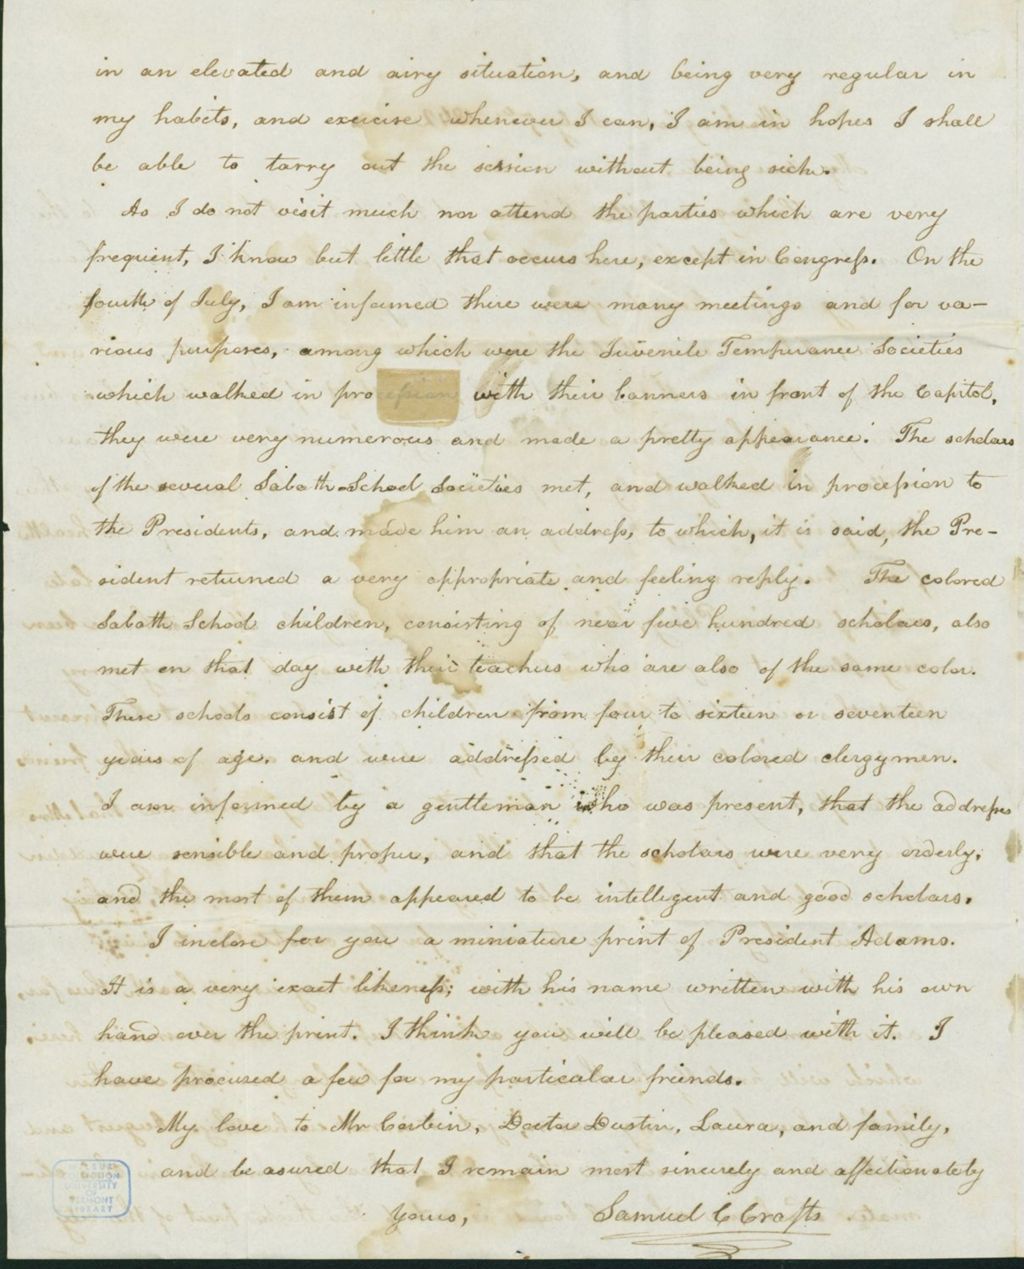 in an elevated and airy situation, and being very regular in
my habits, and excicise whenever I can, I am in hopes I shall
be able to tarry out the session without being sick.
As I do not visit much nor attend the parties which are very
frequent, I know but little that occurs here, except in Congress. On the
fourth of July, I am informed there were many meetings and for va-
rious purposes, among which were the Juvenile Temperance Societies
which walked in procession with their banners in front of the Capitol,
they were very numerous and made a pretty appearance. The scholars
of the several Sabath School Societies met, and walked in procession to
the Presidents, and made him an address, to which, it is said, the Pre-
sident returned a very appropriate and feeling reply. The colored
Sabath School children, consisting of near five hundred scholars, also
met on that day with their teachers who are also of the same color.
These schools consist of children from four to sixteen or seventeen
years of age. and were addressed by their colored clergymen.
I am informed by a gentleman who was present, that the addresses
were sensible and proper, and that the scholars were very orderly,
and the most of them appeared to be intellegent and good scholars.
I inclose for you a miniature print of President Adams.
It is a very exact likeness; with his name written with his own
hand over the print. I think you will be pleased with it. I
have procured a few for my particular friends.
My love to Mr Corbin, Doctor Dustin, Laura, and family,
and be assured that I remain most sincerely and affectionately
Yours, Samuel C Crafts
UNIVERSITY
OF
VERMONT
LIBRARY